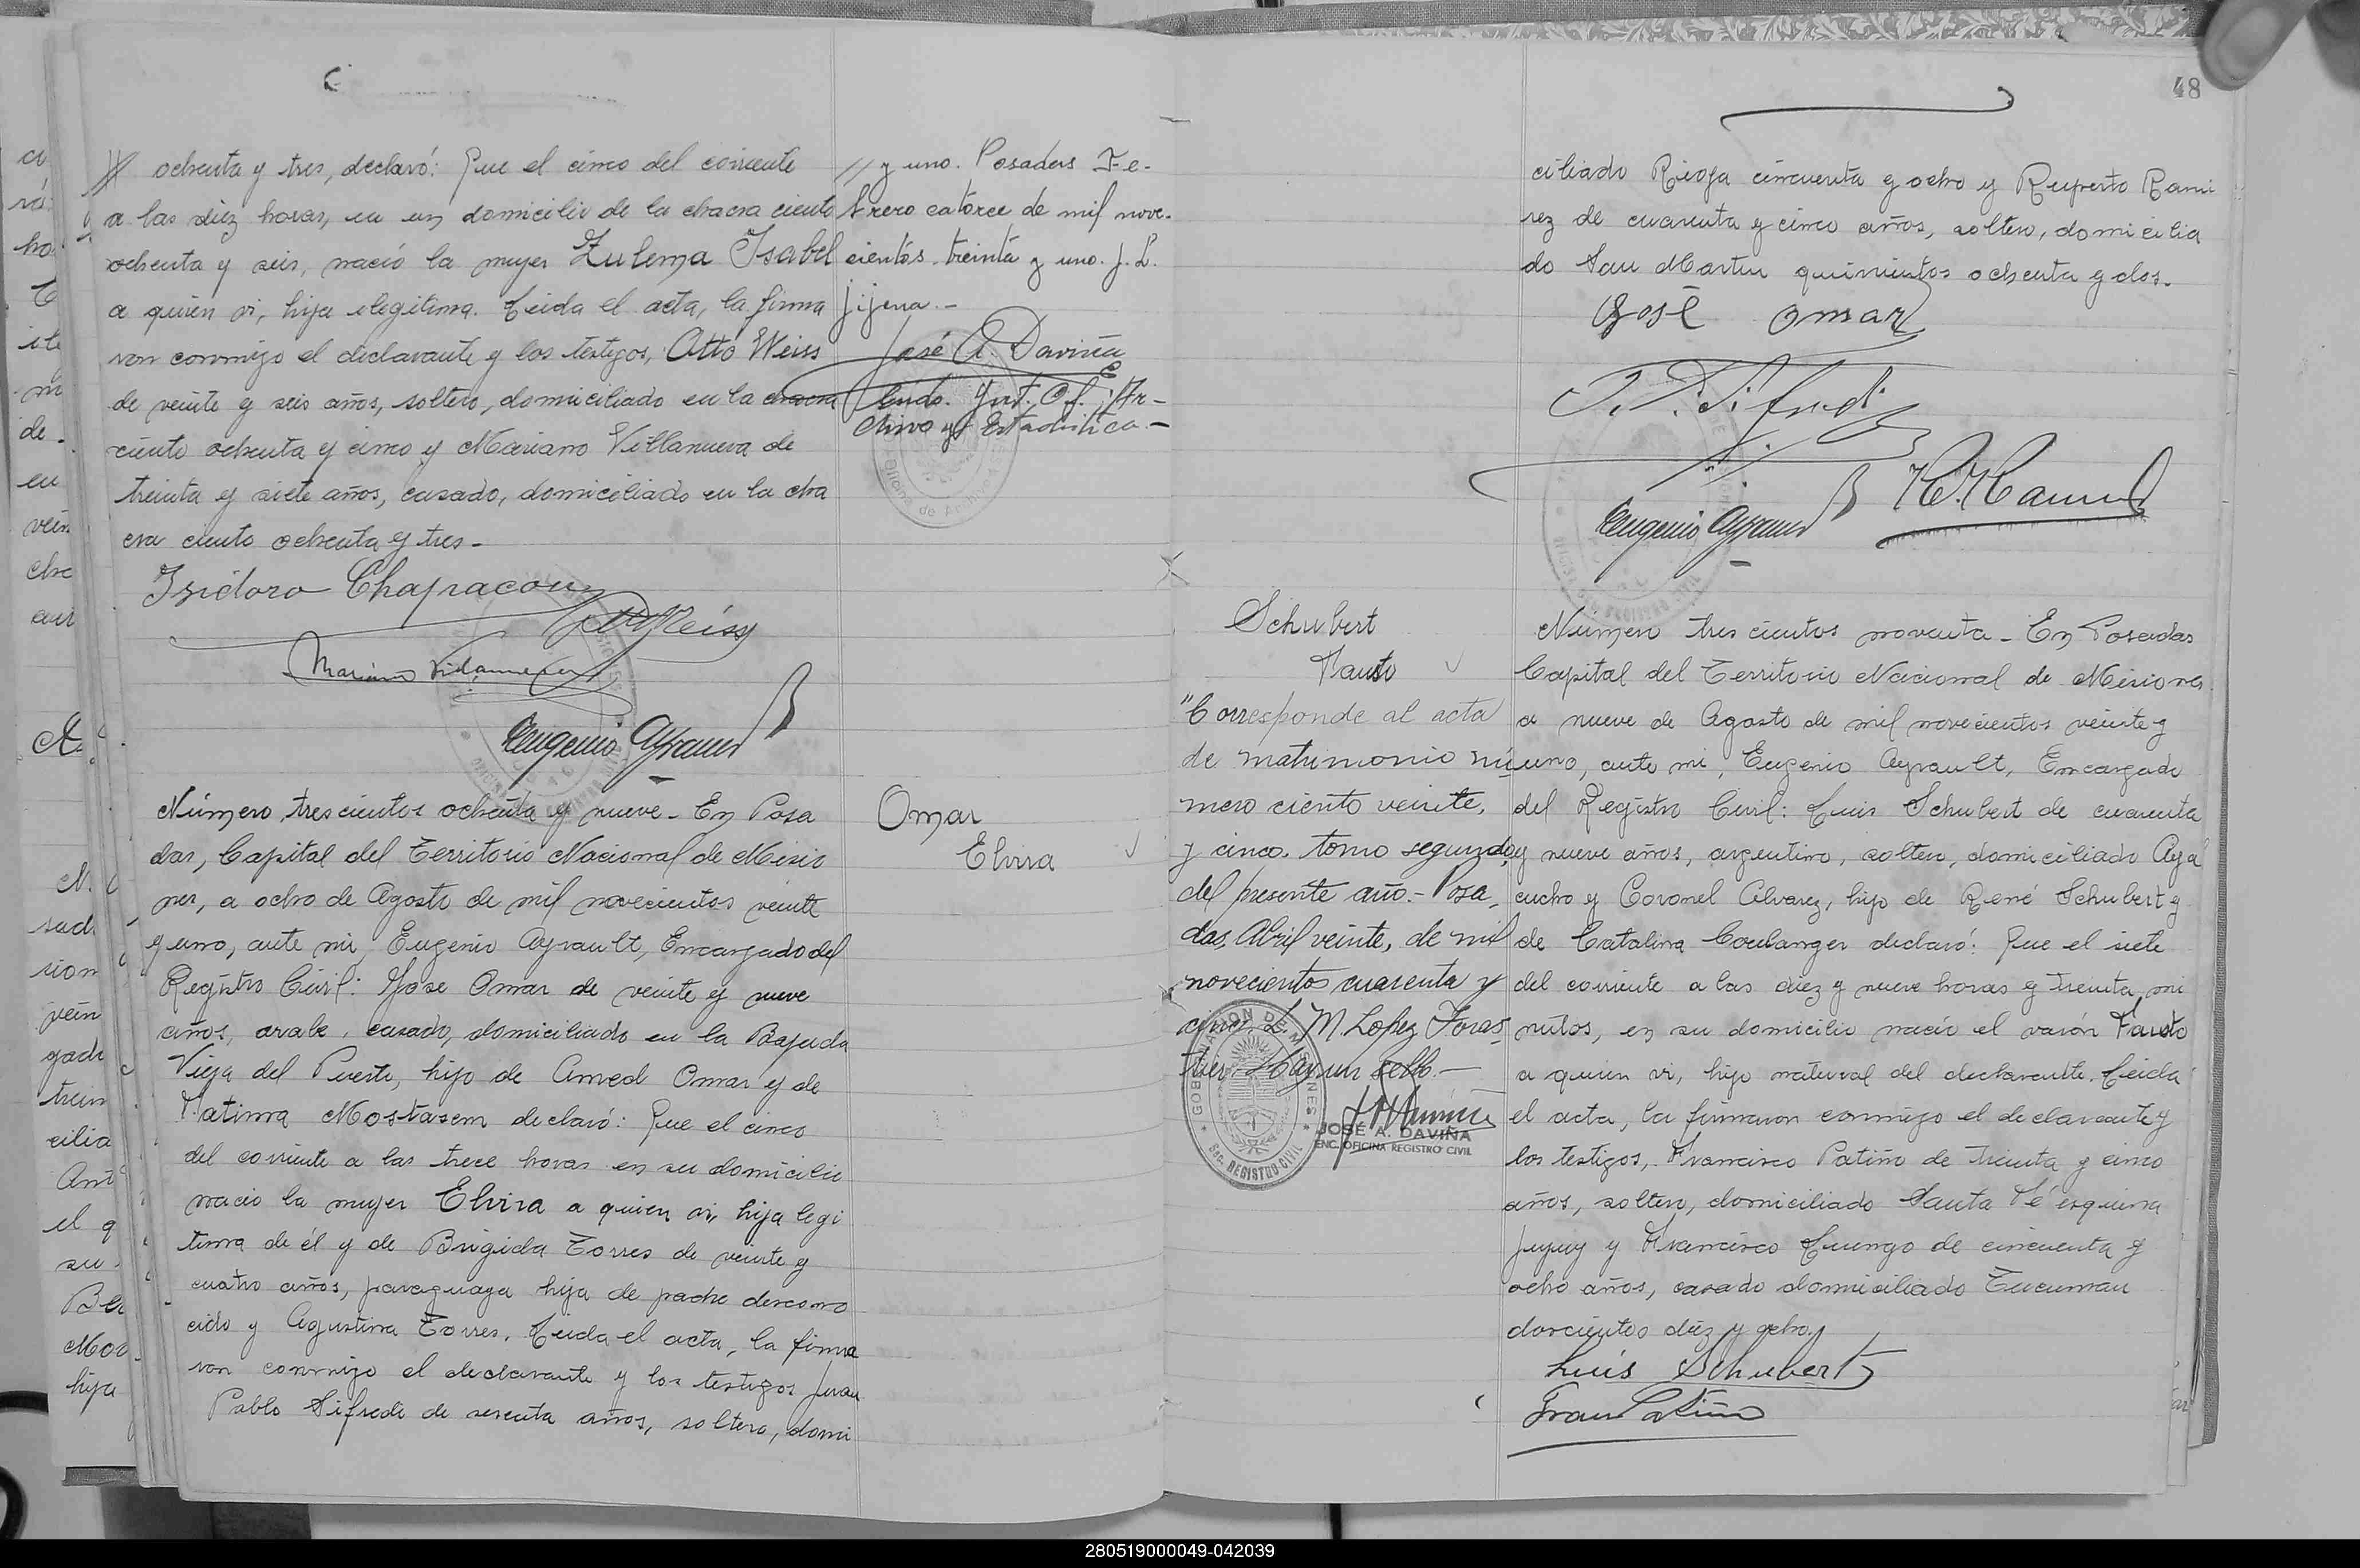 ochenta y tres, declaró: Que el cinco del corriente
a las diez horas, en un domicilio de la chacra ciento
ochenta y seis, nació la mujer Zulema Isabel
a quien vi, hija ilegitima. Leida el acta, la firma
ron conmigo el declarante y los testigos, Otto Weiss
de veinte y seis años, soltero, domiciliado en la chacra
ciento ochenta y cinco y Mariano Villanueva de
treinta y siete años, casado, domiciliado en la cha
cra ciento ochenta y tres.
Isidoro Chapacou
Otto Weiss
Mariano Villanueva
Eugenio Ayrault
// y uno. Posadas Fe-
brero catorce de mil nove-
cientos treinta y uno. J. L.
Jijena.-
José A. Daviña
Encdo. Int. Of. Ar-
chivo y Estadistica.-
Número trescientos ochenta y nueve. En Posa
das, Capital del Territorio Nacional de Misio
nes, a ocho de Agosto de mil novecientos veinte
y uno, ante mi, Eugenio Ayrault, Encargado del
Registro Civil: José Omar de veinte y nueve
años, arabe, casado, domiciliado en la Bajada
Vieja del Puerto, hijo de Amed Omar y de
Fatima Mostasem declaró: Que el cinco
del corriente a las trece horas en su domicilio
nació la mujer Elvira a quien vi, hija legi
tima de él y de Brigida Torres de veinte y
cuatro años, paraguaya hija de padre descono
cido y Agustina Torres. Leida el acta, la firma
ron conmigo el declarante y los testigos Juan
Pablo Sifredi de sesenta años, soltero, domi
Omar
Elvira
48
ciliado Rioja cincuenta y ocho y Ruperto Rami
rez de cuarenta y cinco años, soltero, domicilia
do San Martin quinientos ochenta y dos.
José Omar
J. P. Sifredi
Eugenio Ayrault
Schubert
Fausto
"Corresponde al acta
de matrimonio nú
mero ciento veinte,
y cinco. tomo segundo,
del presente año.- Posa,
das, Abril veinte, de mil
novecientos cuarenta y
cinco. L. M Lopez Foras,
tier. Hay un sello.-
GOBERNACION DE MISIONES
REGISTRO CIVIL
JOSÉ A. DAVIÑA
ENC. OFICINA REGISTRO CIVIL
Número trescientos noventa. En Posadas
Capital del Territorio Nacional de Misiones
a nueve de Agosto de mil novecientos veinte y
uno, ante mi, Eugenio Ayrault, Encargado
del Registro Civil: Luis Schubert de cuarenta
y nueve años, argentino, soltero, domiciliado Aya
cucho y Coronel Alvarez, hijo de René Schubert y
de Catalina Coulanger declaró: Que el siete
del corriente a las diez y nueve horas y treinta mi
nutos, en su domicilio nació el varón Fausto
a quien vi, hijo natural del declarante. Leida
el acta, la firmaron conmigo el declarante y
los testigos, Francisco Patiño de treinta y cinco
años, soltero, domiciliado Santa Fé esquina
Jujuy y Francisco Luengo de cincuenta y
ocho años, casado domiciliado Tucuman
doscientos diez y ocho.
Luis Schubert
Fran Patiño
280519000049-042039